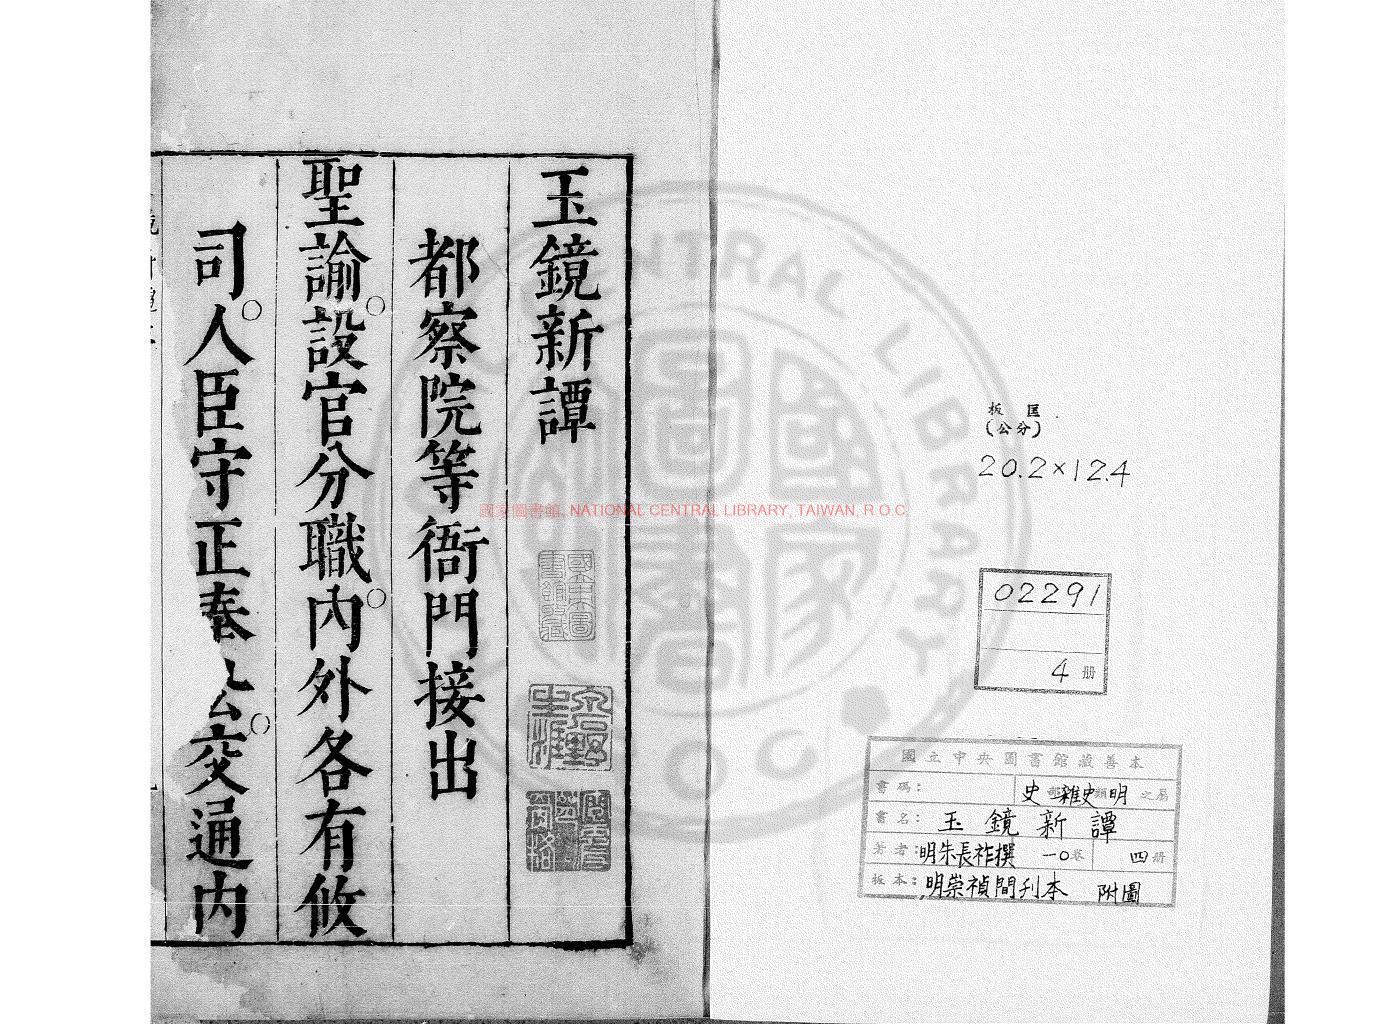 玉鏡新譚
都察院等衙門接出
聖諭設官分職內外各有攸
司人臣守正奉公交通內
國家圖書館, NATIONAL CENTRAL LIBRARY, TAIWAN, R.O.C
CENTRAL LIBRARY
國家圖書
R O C
板匡
(公分)
20.2×12.4
02291
4 册
國立中央圖書館藏善本
書碼: 史部雜史類明之屬
書名: 玉鏡新譚
著者: 明朱長祚撰 一〇卷 四册
板本: 明崇禎間刊本 附圖